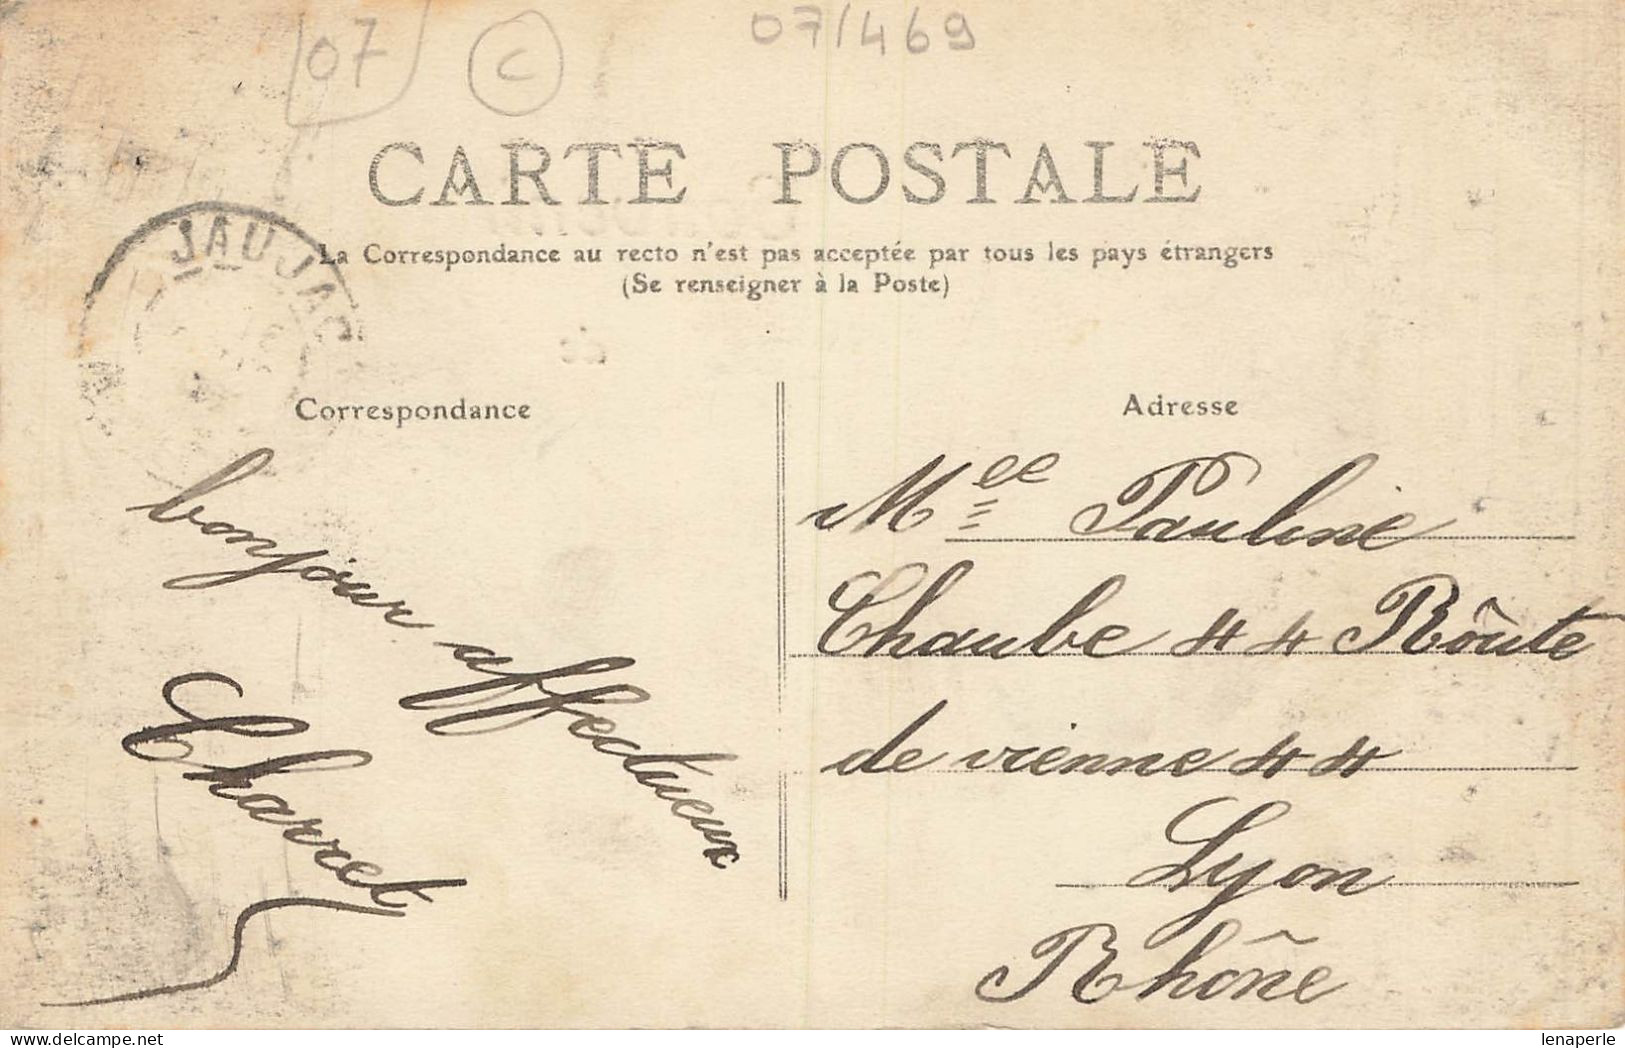 07
C
07/469
CARTE POSTALE
La Correspondance au recto n'est pas acceptée par tous les pays étrangers
(Se renseigner à la Poste)
JAUJAC
Correspondance
bonjour affectueux
Charret
Adresse
Mee Pauline
Chaube 44 Rôute
de vienne 44
Lyon
Rhône
lenaperle